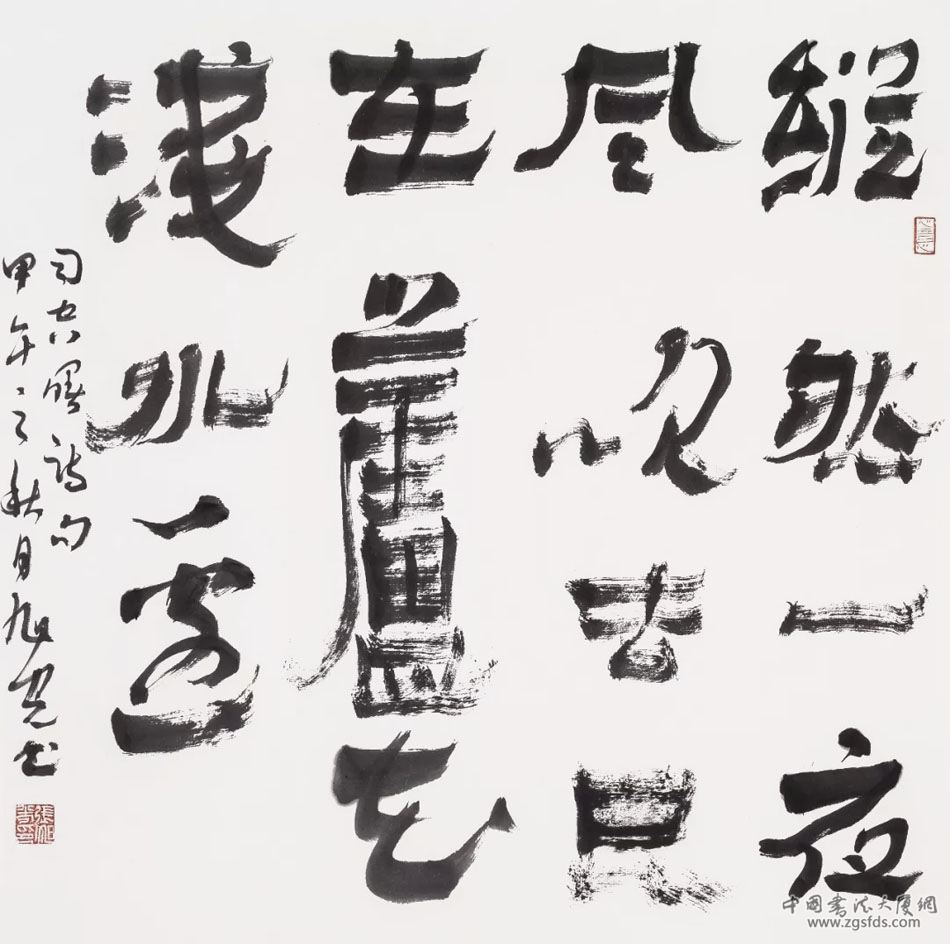 縱然一夜
風吹去只
在蘆花
淺水邊
司空曙詩句
甲午之秋月旭光书
張旭光印
中国书法大厦網
www.zgsfds.com